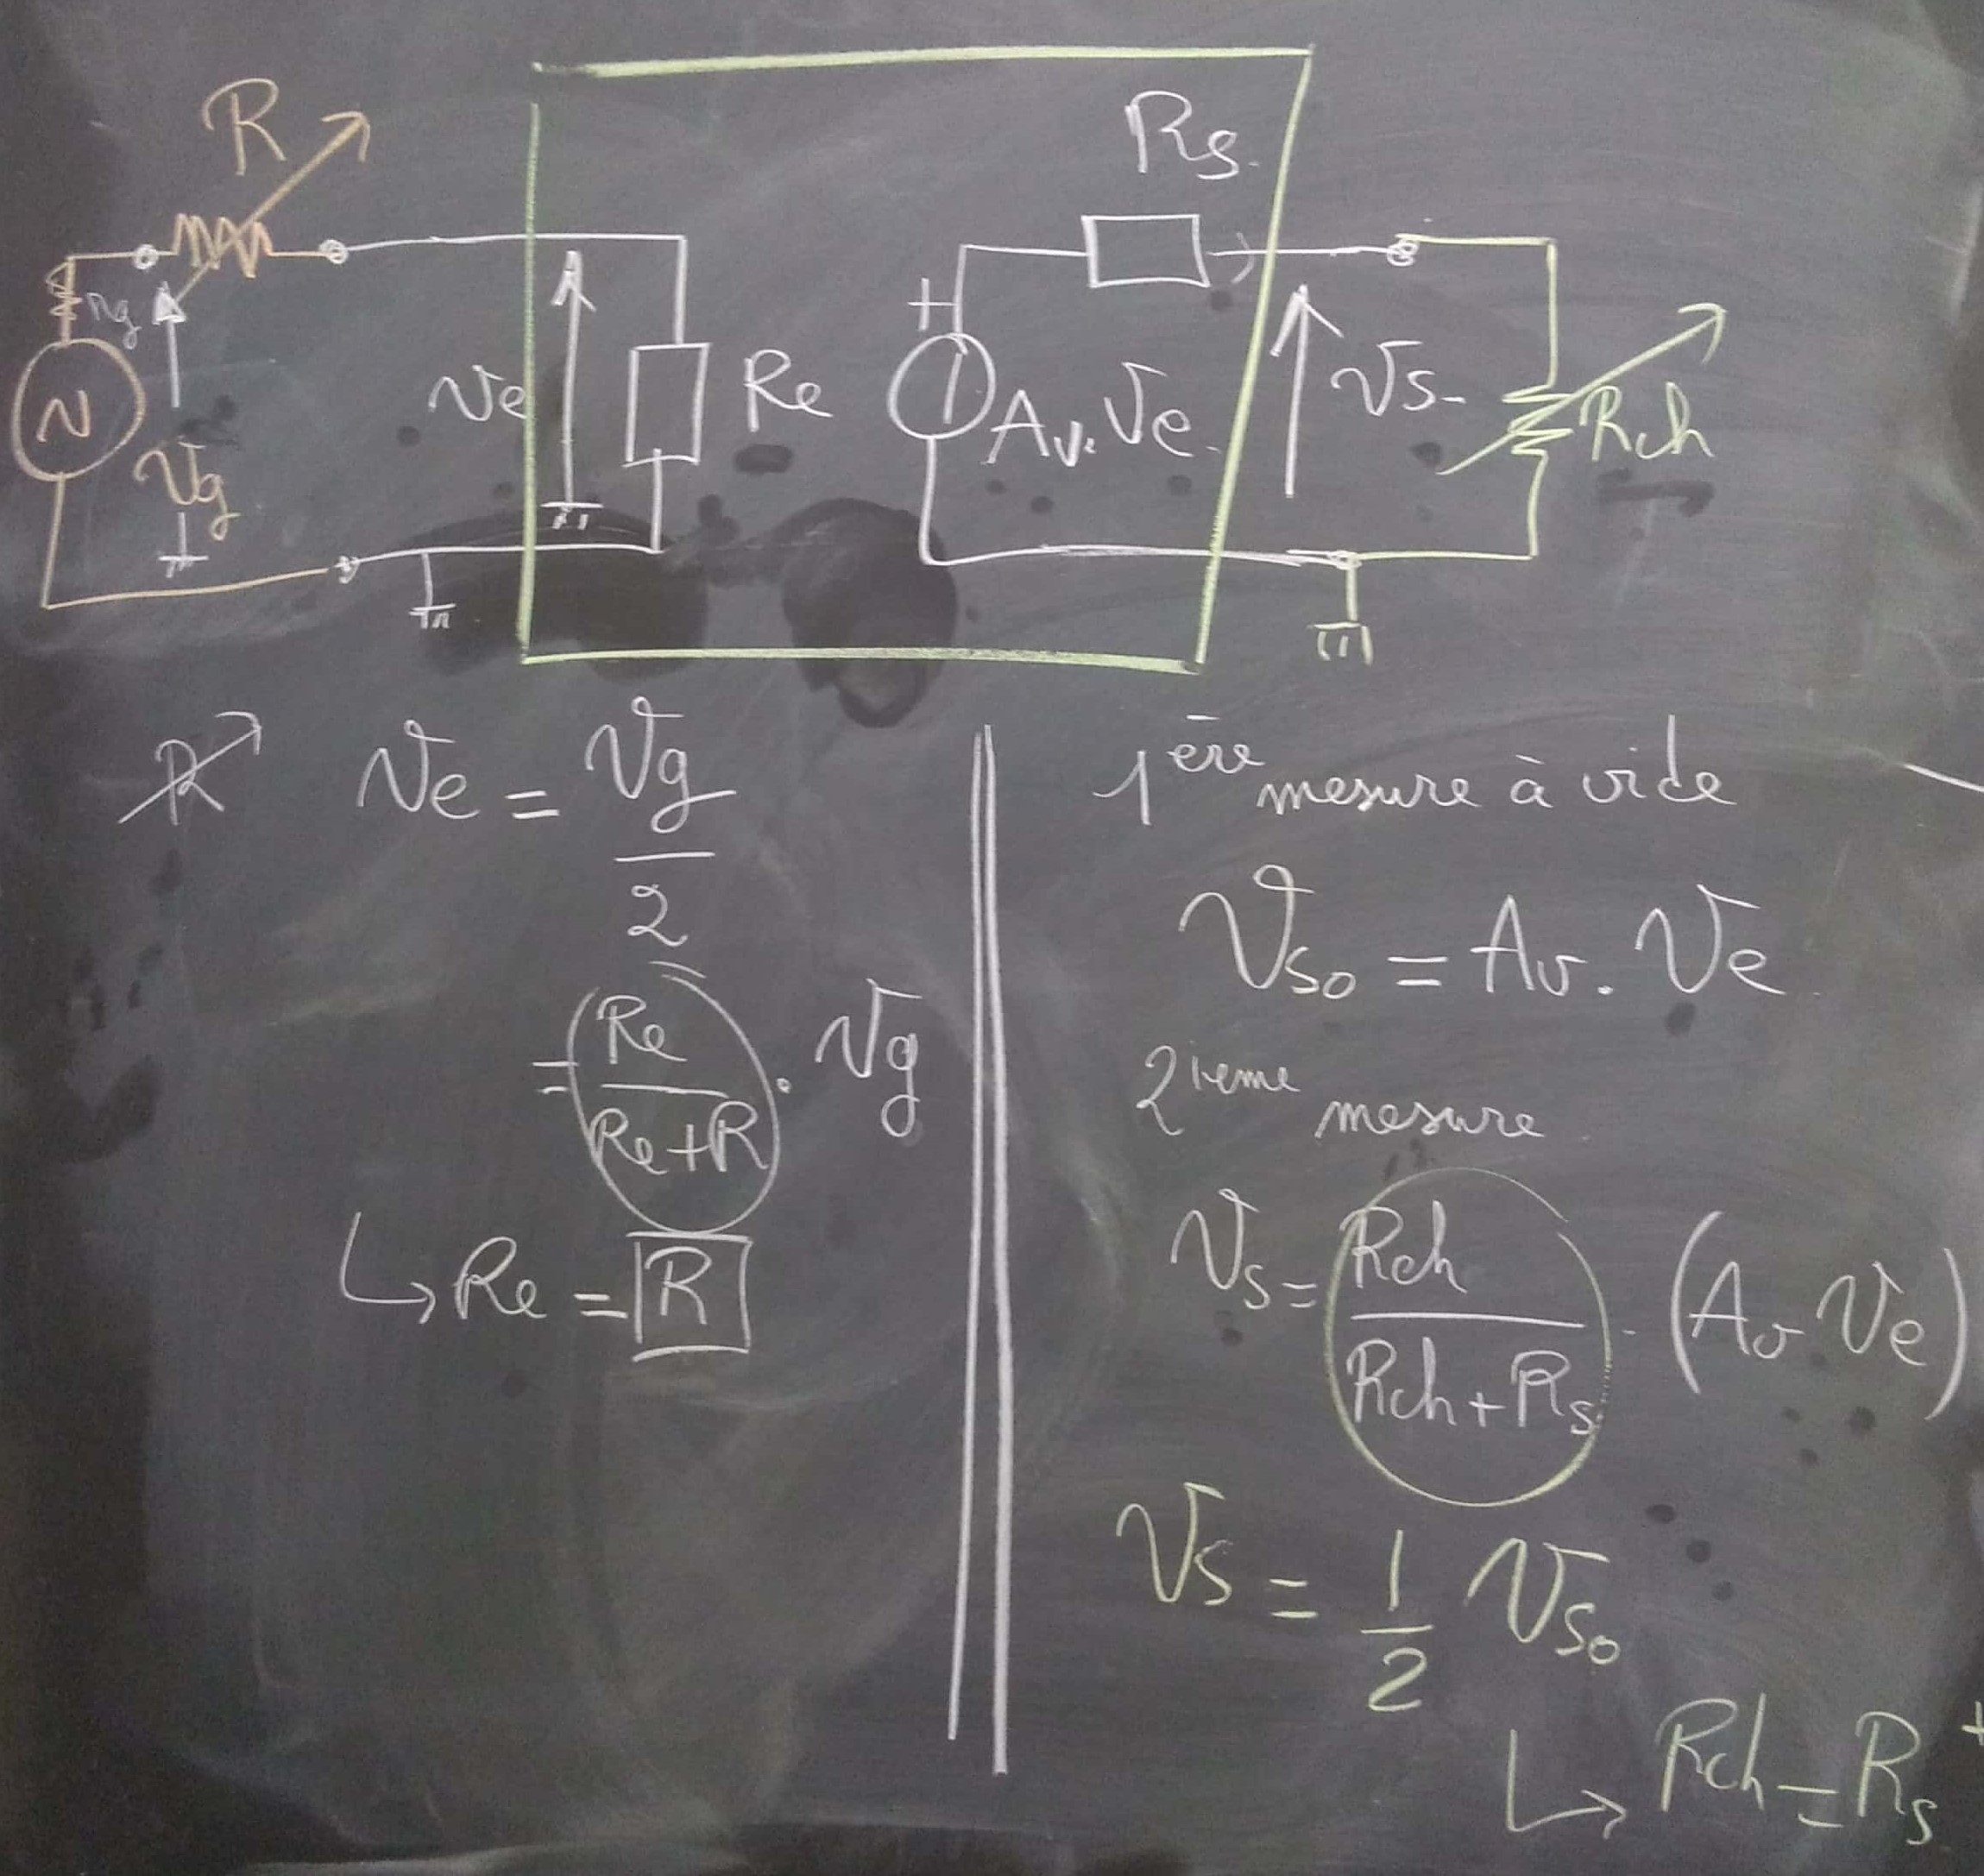 R
Rs
Rg
Vg
Ve
Re
+
Av. Ve
Vs
Rch
R
Ve = Vg / 2
= (Re / Re+R) . Vg
↳ Re = R
1ère mesure à vide
Vso = Av. Ve
2ieme mesure
Vs = Rch / Rch+Rs . (Av Ve)
Vs = 1/2 Vso
↳ Rch = Rs